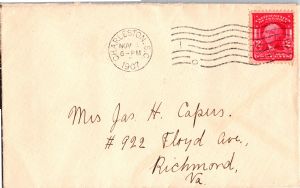 CHARLESTON, S.C.
NOV
6-PM
1907
Mrs Jas. H. Capers.
# 922 Floyd Ave,
Richmond,
Va.